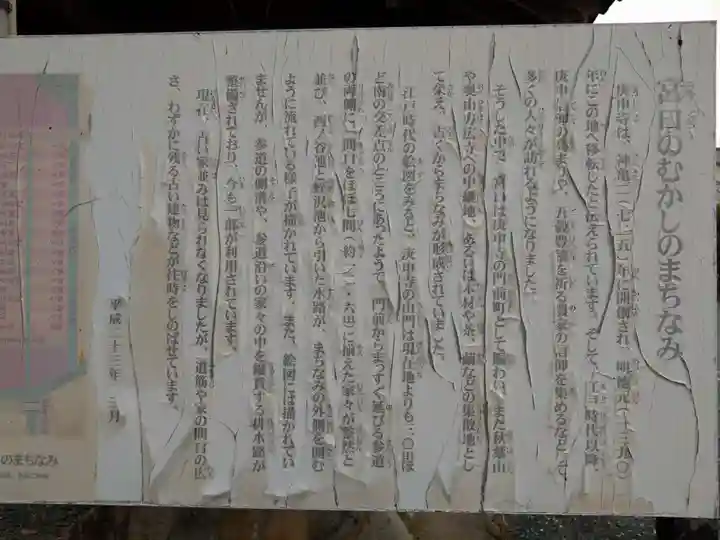 宮口のむかしのまちなみ
庚申寺は、神亀二(七二五)年に開創され、明徳元(一三九〇)
年にこの地へ移転したと伝えられています。そして、江戸時代以降、
庚申信仰の高まりや、五穀豊穣を祈る農家の信仰を集めるなどして、
多くの人々が訪れるようになりました。
そうした中で、宮口は庚申寺の門前町として賑わい、また秋葉山
や奥山方広寺への中継地、あるいは木材や茶、繭などの集散地とし
て栄え、古くからまちなみが形成されていました。
江戸時代の絵図をみると、庚申寺の山門は現在地よりも三〇mほ
ど南の交差点のところにあったようで、門前からまっすぐ延びる参道
の両側に、間口をほぼ七間(約一二・六m)に揃えた家々が整然と
並び、西ノ谷池と蛭沢池から引いた水路が、まちなみの外側を囲む
ように流れている様子が描かれています。また、絵図には描かれてい
ませんが、参道の側溝や、参道沿いの家々の中を縦貫する排水路が
整備されており、今も一部が利用されています。
現在、古い家並みは見られなくなりましたが、道筋や家の間口の広
さ、わずかに残る古い建物などが往時をしのばせています。
平成二十三年 三月
のまちなみ